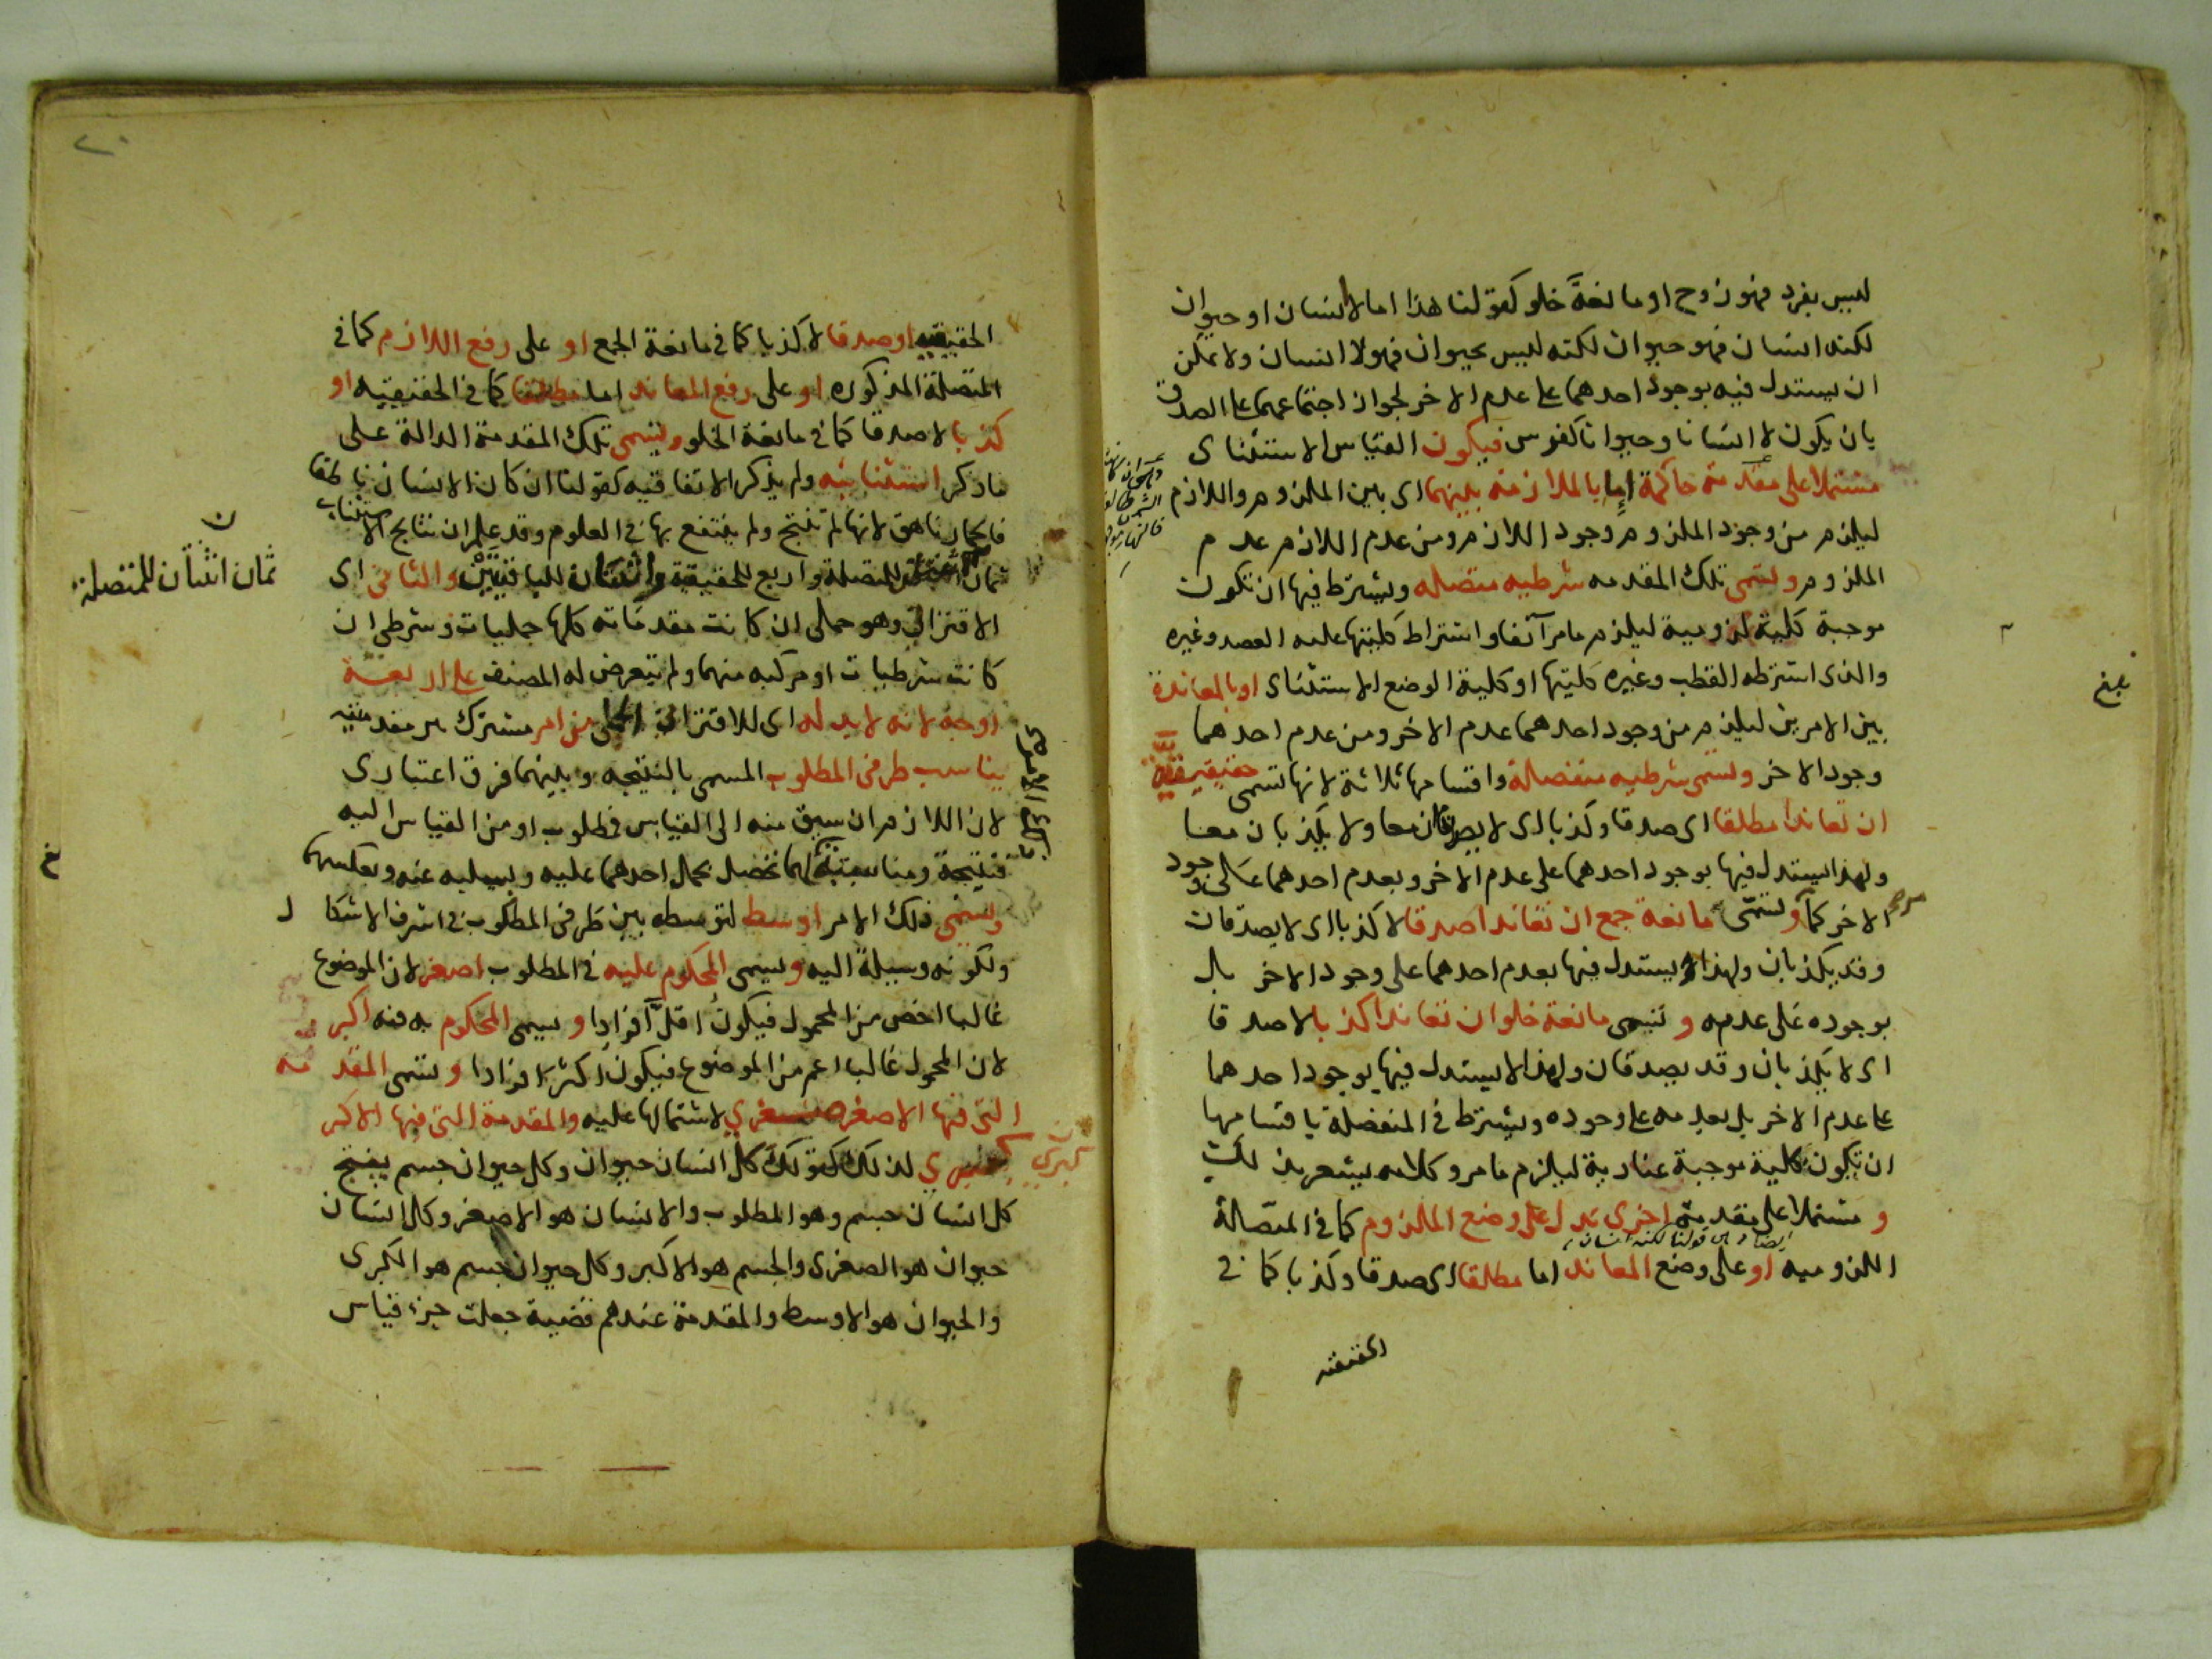 ليس بفرد فهو زوج او مانعة خلو كقولنا هذا اما لا انسان او حيوان
لكنه انسان فهو حيوان لكنه ليس بحيوان فهو لا انسان ولا يمكن
ان يستدل فيه بوجود احدهما على عدم الاخر لجواز اجتماعهما على الصدق
بان يكون لا انسانا وحيوانا كفرس فيكون القياس الاستثنائى
مشتملا على مقدمة حاكمة اما بالملازمة بينهما اى بين الملزوم واللازم
ليلزم من وجود الملزوم وجود اللازم ومن عدم اللازم عدم
الملزوم وتسمى تلك المقدمه شرطيه متصله ويشترط فيها ان تكون
موجبة كلية لزومية ليلزم ما مر آنفا واشتراط كليتها عليه العضد وغيره
والذى اشترطه القطب وغيره كليتها او كلية الوضع الاستثنائى او بالمعاندة
بين الامرين ليلزم من وجود احدهما عدم الاخر ومن عدم احدهما
وجود الاخر وتسمى شرطيه منفصلة واقسامها ثلاثة لانها تسمى حقيقيه
ان تعاندا مطلقا اى صدقا وكذبا اى لا يصدقان معا ولا يكذبان معا
ولهذا يستدل فيها بوجود احدهما على عدم الاخر وبعدم احدهما على وجود
الاخر كما مر وتسمى مانعة جمع ان تعاندا صدقا لا كذبا اى لا يصدقان
وقد يكذبان ولهذا لا يستدل فيها بعدم احدهما على وجود الاخر بل
بوجوده على عدمه وتسمى مانعة خلو ان تعاندا كذبا لا صدقا
اى لا يكذبان وقد يصدقان ولهذا لا يستدل فيها بوجود احدهما
على عدم الاخر بل بعدمه على وجوده ويشترط فى المنفصلة باقسامها
ان تكون كلية موجبة عنادية ليلزم ما مر وكلامه يشعر بذلك
ومشتملا على مقدمة اخرى تدل على وضع الملزوم كما فى المتصلة
اللزوميه او على وضع المعاند اما مطلقا اى صدقا وكذبا كما فى
الحقيقيه
بلغ
٢٠
الحقيقيه او صدقا لا كذبا كما فى مانعة الجمع او على رفع اللازم كما فى
المتصلة المذكوره او على رفع المعاند اما مطلقا كما فى الحقيقيه او
كذبا لا صدقا كما فى مانعة الخلو وتسمى تلك المقدمة الدالة على
ما ذكر استثنائيه ولم يذكر الاتفاقيه كقولنا ان كان الانسان ناطقا
فالحمار ناهق لانها لم تنتج ولم ينتفع بها فى العلوم وقد علم ان نتايج الاستثنائى
ثمان اثنتان للمتصلة واربع للحقيقية واثنتان للباقيتين والثانى اى
الاقترانى وهو حملى ان كانت مقدماته كلها حمليات وشرطى ان
كانت شرطيات او مركبه منهما ولم يتعرض له المصنف على اربعة
اوجه لانه لابد له اى للاقترانى الحملى من امر مشترك بين مقدمتيه
يناسب طرفى المطلوب المسمى بالنتيجه وبينهما فرق اعتبارى
لان اللازم ان سبق منه الى القياس فمطلوب او من القياس اليه
فنتيجة ومناسبته لهما تحصل بحمل احدهما عليه وبسلبه عنه وبعكسهما
ويسمى ذلك الامر اوسط لتوسطه بين طرفى المطلوب فى اشرف الاشكال
ولكونه وسيلة اليه ويسمى المحكوم عليه فى المطلوب اصغر لان الموضوع
غالبا اخص من المحمول فيكون اقل افرادا ويسمى المحكوم به فيه اكبر
لان المحمول غالبا اعم من الموضوع فيكون اكثر افرادا وتسمى المقدمه
التى فيها الاصغر صغرى لاشتمالها عليه والمقدمة التى فيها الاكبر
كبرى لذلك كقولك كل انسان حيوان وكل حيوان جسم ينتج
كل انسان جسم وهو المطلوب والانسان هو الاصغر وكل انسان
حيوان هو الصغرى والجسم هو الاكبر وكل حيوان جسم هو الكبرى
والحيوان هو الاوسط والمقدمة عندهم قضية جعلت جزء قياس
ثمان اثنتان للمتصلة
كبرى